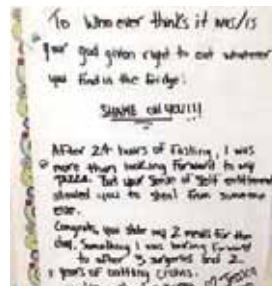 To Who ever thinks it was/is
your god given right to eat whatever
you find in the fridge:
SHAME ON YOU!!!
After 24 hours of Fasting, I was
more than looking forward to my
pizza. But your sense of self entitlement
allowed you to steal from someone
else.
Congrats, you stole my 2 meals for the
day. Something I was looking forward
to after 3 surgeries and 2
years of battling crohns.
Jessica